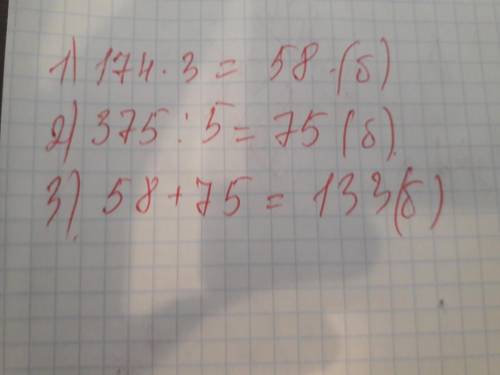 1) 174 · 3 = 58 · (б)
2) 375 : 5 = 75 (б)
3) 58 + 75 = 133 (б)